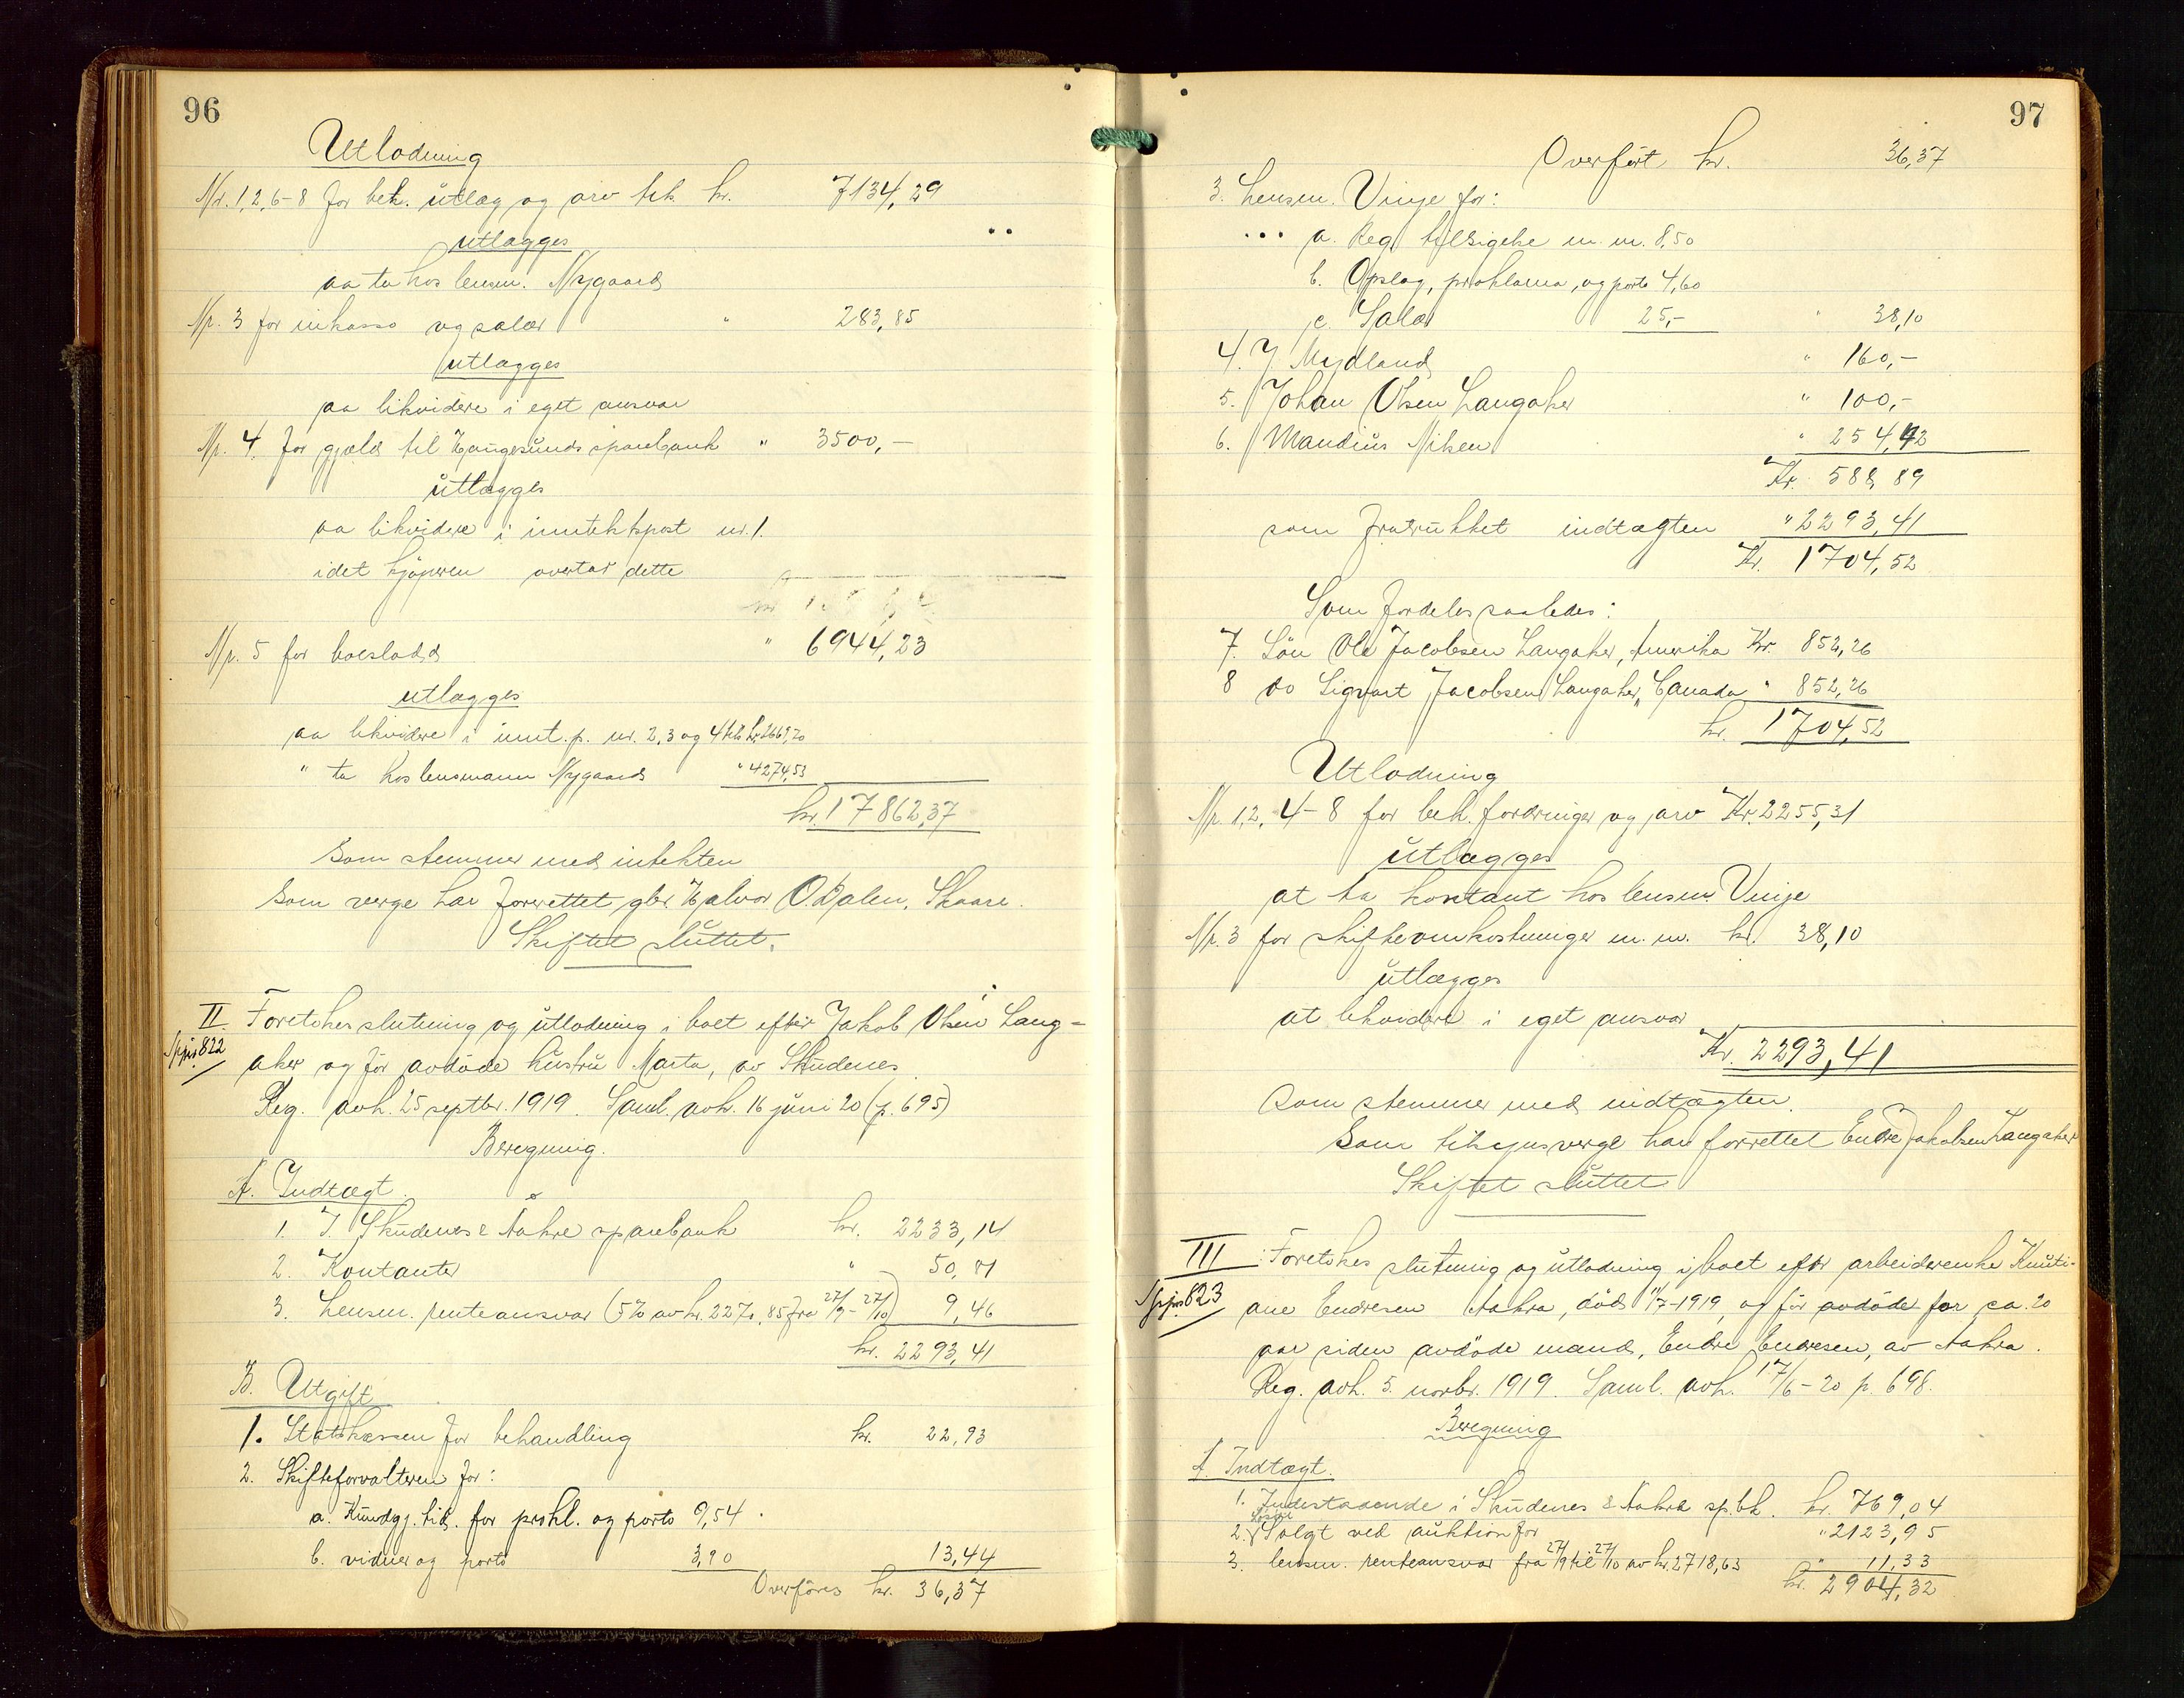 96
Utlodning
Nr. 1, 2, 6-8 for beh. utlæg og arv tils. kr. 7134,29
utlægges
aa ta hos lensm. Nygaard
Nr. 3 for inkasso og salær " 283,85
utlægges
aa likvidere i eget ansvar
Nr. 4. for gjæld til Haugesunds sparebank " 3500,-
utlægges
aa likvidere i inntektspost nr. 1.
idet kjøperen overtar dette
Nr. 5 for boeslodd " 6944,23
utlægges
aa likvidere i innt. p. nr. 2, 3 og 4 tils kr. 2669,70
" ta hos lensmann Nygaard " 4274,53
kr. 17862,37
Som stemmer med intekten
Som verge har forrettet gbr. Halvor O Dalen, Skaare.
Skiftet sluttet.
II. Foretokes slutning og utlodning i boet efter Jakob Olsen Lang-
Spjs. 822
aker og før avdøde hustru Marta, av Skudenes
Reg. avh. 25 septbr. 1919. Saml. avh. 16 juni 20 (p. 695)
Beregning.
A. Indtægt.
1. I Skudenes & Aakre sparebank kr. 2233,14
2. Kontanter " 50,81
3. Lensm. renteansvar (5% av kr. 2270,85 fra 27/9 - 27/10) 9,46
kr. 2293,41
B. Utgift
1. Statskassen for behandling kr. 22,93
2. Skifteforvalteren for:
a. Kundgj. tid. for prokl. og porto 9,54.
b. vidner og porto 3,90 13,44
Overføres kr. 36,37
97
Overført kr. 36,37
3. Lensm. Vinje for:
a. Reg. tilsigelse m. m. 8,50
b. Opslag, proklama, og porto 4,60
c. Salær 25,- " 38,10
4. J Mydland " 160,-
5. Johan Olsen Langaker " 100,-
6. Mandius Nilsen " 254,42
Kr. 588,89
som fratrukket indtægten " 2293,41
Kr. 1704,52
Som fordeles saaledes:
7. Søn Ole Jacobsen Langaker, Amerika Kr. 852,26
8 do Sigvart Jacobsen Langaker, Canada " 852,26
kr. 1704,52
Utlodning
Nr. 1, 2, 4-8 for beh. fordringer og arv Kr. 2255,31
utlægges
at ta kontant hos lensm Vinje
Nr. 3 for skifteomkostninger m. m. kr. 38,10
utlægges
at likvidere i eget ansvar
Kr. 2293,41
Som stemmer med indtægten.
Som tilsynsverge har forrettet Endre Jakobsen Langaker
Skiftet sluttet
III Foretokes slutning og utlodning i boet efter arbeiderenke Knuti-
Spjs. 823
ane Endresen Aakra, død 11/7-1919, og før avdøde for ca. 20
aar siden avdøde mand, Endre Endresen, av Aakra.
Reg. avh. 5. novbr. 1919. Saml. avh. 17/6-20 p. 698.
Beregning
A. Indtægt.
1. Indestaaende i Skudenes & Aakra sp.bk. kr. 769,04
2. Løsøre Solgt ved auktion for " 2123,95
3. lensm. renteansvar fra 27/9 til 27/10 av kr. 2718,63 " 11,33
kr. 2904,32